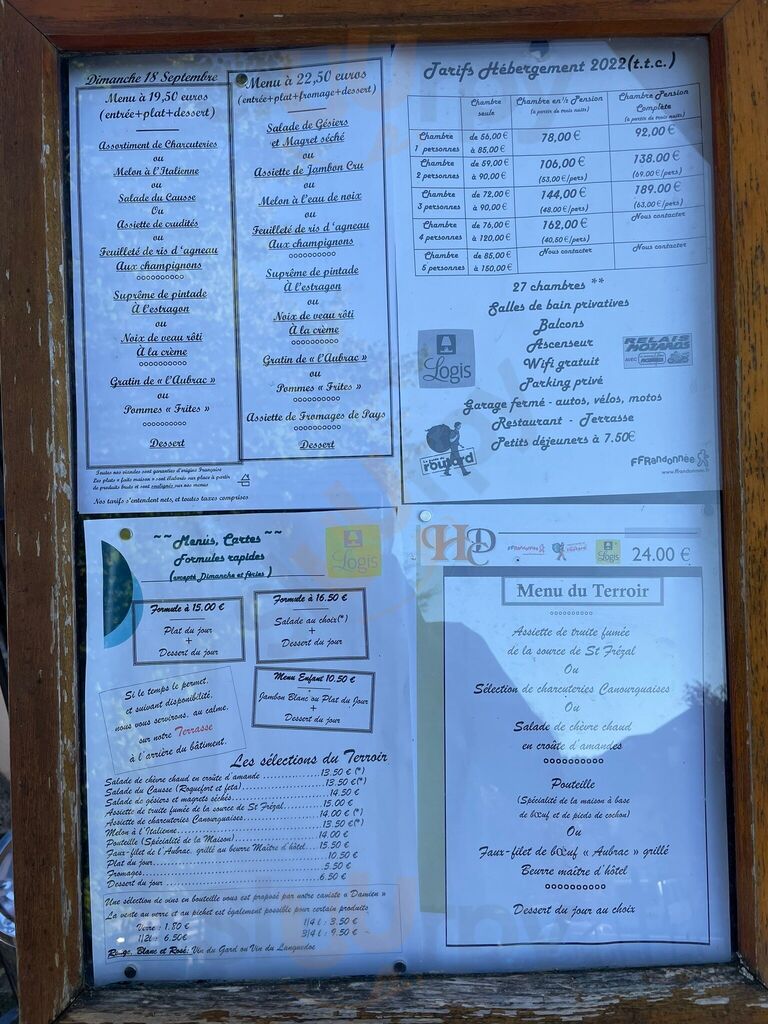 Dimanche 18 Septembre
Menu à 19,50 euros
(entrée+plat+dessert)
Assortiment de Charcuteries
ou
Melon à l'Italienne
ou
Salade du Causse
Ou
Assiette de crudités
ou
Feuilleté de ris d'agneau
Aux champignons
°°°°°°°°°°
Suprême de pintade
À l'estragon
ou
Noix de veau rôti
À la crème
°°°°°°°°°°
Gratin de « l'Aubrac »
ou
Pommes « Frites »
°°°°°°°°°°
Dessert
Menu à 22,50 euros
(entrée+plat+fromage+dessert)
Salade de Gésiers
et Magret séché
ou
Assiette de Jambon Cru
ou
Melon à l'eau de noix
ou
Feuilleté de ris d'agneau
Aux champignons
°°°°°°°°°°
Suprême de pintade
À l'estragon
ou
Noix de veau rôti
À la crème
°°°°°°°°°°
Gratin de « l'Aubrac »
ou
Pommes « Frites »
°°°°°°°°°°
Assiette de Fromages de Pays
°°°°°°°°°°
Dessert
Toutes nos viandes sont garanties d'origine Française
Les plats « faits maison » sont élaborés sur place à partir
de produits bruts et sont soulignés sur nos menus
Nos tarifs s'entendent nets, et toutes taxes comprises
Tarifs Hébergement 2022(t.t.c.)
Chambre seule
Chambre en ½ Pension (à partir de trois nuits)
Chambre Pension Complète (à partir de trois nuits)
Chambre 1 personnes de 56,00 € à 85,00 € 78,00 € 92,00 €
Chambre 2 personnes de 59,00 € à 90,00 € 106,00 € (53,00 €/pers) 138.00 € (69.00 €/pers)
Chambre 3 personnes de 72,00 € à 90,00 € 144,00 € (48,00 €/pers) 189.00 € (63,00 €/pers)
Chambre 4 personnes de 76,00 € à 120,00 € 162,00 € (40,50 €/pers) Nous contacter
Chambre 5 personnes de 85,00 € à 150,00 € Nous contacter Nous contacter
27 chambres **
Salles de bain privatives
Balcons
Ascenseur
Wifi gratuit
Parking privé
Garage fermé - autos, vélos, motos
Restaurant - Terrasse
Petits déjeuners à 7.50€
Logis
RELAIS MOTARDS
AVEC
routard
FFRandonnée
www.ffrandonnee.fr
~~ Menus, Cartes ~~
Formules rapides
(excepté Dimanche et fériés)
Logis
Formule à 15.00 €
Plat du jour
+
Dessert du jour
Formule à 16.50 €
Salade au choix(*)
+
Dessert du jour
Menu Enfant 10,50 €
Jambon Blanc ou Plat du Jour
+
Dessert du jour
Si le temps le permet,
et suivant disponibilité,
nous vous servirons, au calme,
sur notre Terrasse
à l'arrière du bâtiment.
Les sélections du Terroir
Salade de chèvre chaud en croûte d'amande ....................13.50 € (*)
Salade du Causse (Roquefort et feta)....................13.50 €(*)
Salade de gésiers et magrets séchés....................14.50 €
Assiette de truite fumée de la source de St Frézal....................15.00 €
Assiette de charcuteries Canourguaises....................14.00 € (*)
Melon à l'Italienne....................13.50 €(*)
Pouteille (Spécialité de la Maison)....................14.00 €
Faux-filet de l'Aubrac, grillé au beurre Maître d'hôtel....................15.50 €
Plat du jour....................10.50 €
Fromages....................5.50 €
Dessert du jour ....................6.50 €
Une sélection de vins en bouteille vous est proposé par notre caviste « Damien »
La vente au verre et au pichet est également possible pour certain produits
Verre : 1.80 € 1/4 l : 3.50 €
1/2l : 6.50€ 3/4 l : 9.50 €
Rouge, Blanc et Rosé: Vin du Gard ou Vin du Languedoc
HPC
FFRandonnée
Logis
24.00 €
Menu du Terroir
°°°°°°°°°°
Assiette de truite fumée
de la source de St Frézal
Ou
Sélection de charcuteries Canourguaises
Ou
Salade de chèvre chaud
en croûte d'amandes
°°°°°°°°°°
Pouteille
(Spécialité de la maison à base
de bœuf et de pieds de cochon)
Ou
Faux-filet de bœuf « Aubrac » grillé
Beurre maître d'hôtel
°°°°°°°°°°
Dessert du jour au choix